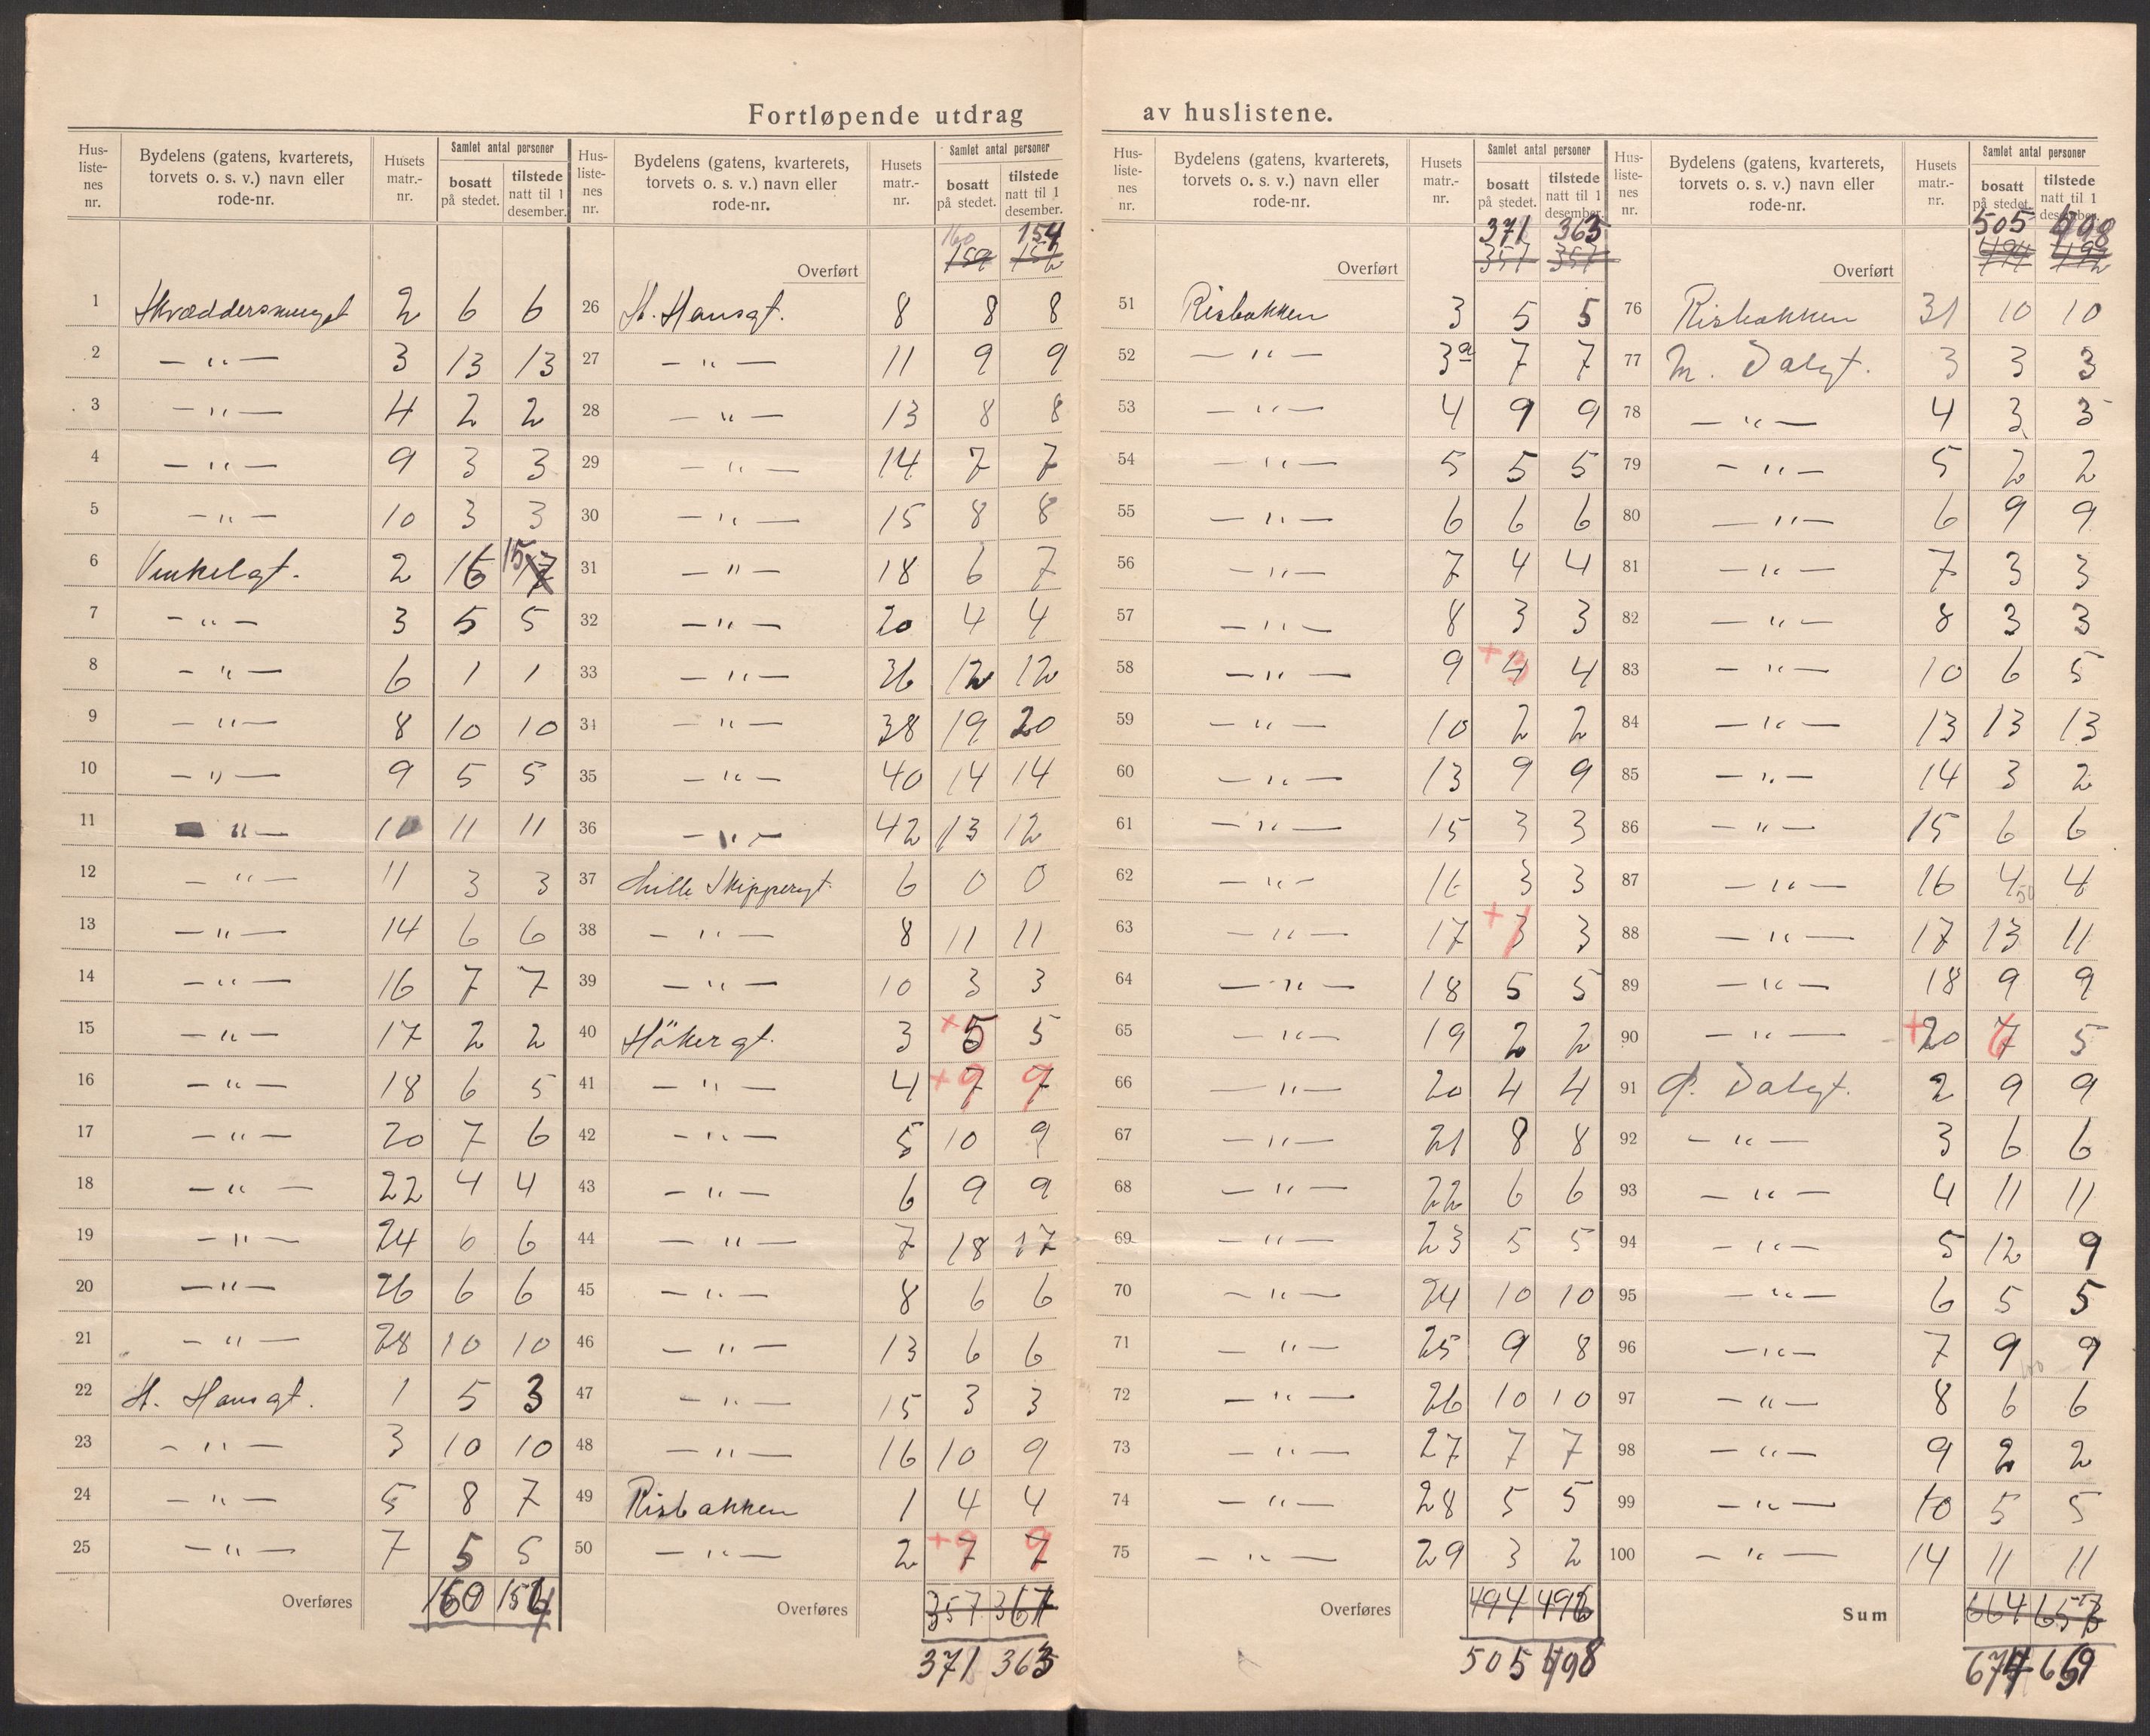 Fortløpende utdrag av huslistene.
Hus-liste-nes nr. Bydelens (gatens, kvarterets, torvets o. s. v.) navn eller rode-nr. Husets matr.-nr. Samlet antal personer bosatt på stedet. tilstede natt til 1 desember.
1 Skræddersmuget 2 6 6
2 — " — 3 13 13
3 — " — 4 2 2
4 — " — 9 3 3
5 — " — 10 3 3
6 Vinkelgt. 2 16 15
7 — " — 3 5 5
8 — " — 6 1 1
9 — " — 8 10 10
10 — " — 9 5 5
11 " — 10 11 11
12 — " — 11 3 3
13 — " — 14 6 6
14 — " — 16 7 7
15 — " — 17 2 2
16 — " — 18 6 5
17 — " — 20 7 6
18 — " — 22 4 4
19 — " — 24 6 6
20 — " — 26 6 6
21 — " — 28 10 10
22 St. Hansgt. 1 5 3
23 — " — 3 10 10
24 — " — 5 8 7
25 — " — 7 5 5
Overføres 160 154
Hus-liste-nes nr. Bydelens (gatens, kvarterets, torvets o. s. v.) navn eller rode-nr. Husets matr.-nr. Samlet antal personer bosatt på stedet. tilstede natt til 1 desember.
160 154
Overført 159 152
26 St. Hansgt. 8 8 8
27 — " — 11 9 9
28 — " — 13 8 8
29 — " — 14 7 7
30 — " — 15 8 8
31 — " — 18 6 7
32 — " — 20 4 4
33 — " — 36 12 12
34 — " — 38 19 20
35 — " — 40 14 14
36 — " — 42 13 12
37 Lille Skippergt. 6 0 0
38 — " — 8 11 11
39 — " — 10 3 3
40 Høkergt. 3 + 5 5
41 — " — 4 + 9 9
42 — " — 5 10 9
43 — " — 6 9 9
44 — " — 7 18 17
45 — " — 8 6 6
46 — " — 13 6 6
47 — " — 15 3 3
48 — " — 16 10 9
49 Risbakken 1 4 4
50 — " — 2 + 9 9
Overføres 357 361
371 363
Hus-liste-nes nr. Bydelens (gatens, kvarterets, torvets o. s. v.) navn eller rode-nr. Husets matr.-nr. Samlet antal personer bosatt på stedet. tilstede natt til 1 desember.
371 363
Overført 357 357
51 Risbakken 3 5 5
52 — " — 3a 7 7
53 — " — 4 9 9
54 — " — 5 5 5
55 — " — 6 6 6
56 — " — 7 4 4
57 — " — 8 3 3
58 — " — 9 + 4 4
59 — " — 10 2 2
60 — " — 13 9 9
61 — " — 15 3 3
62 — " — 16 3 3
63 — " — 17 + 3 3
64 — " — 18 5 5
65 — " — 19 2 2
66 — " — 20 4 4
67 — " — 21 8 8
68 — " — 22 6 6
69 — " — 23 5 5
70 — " — 24 10 10
71 — " — 25 9 8
72 — " — 26 10 10
73 — " — 27 7 7
74 — " — 28 5 5
75 — " — 29 3 2
Overføres 494 496
505 498
Hus-liste-nes nr. Bydelens (gatens, kvarterets, torvets o. s. v.) navn eller rode-nr. Husets matr.-nr. Samlet antal personer bosatt på stedet. tilstede natt til 1 desember.
505 498
Overført 494 492
76 Risbakken 31 10 10
77 M. Dalgt. 3 3 3
78 — " — 4 3 3
79 — " — 5 2 2
80 — " — 6 9 9
81 — " — 7 3 3
82 — " — 8 3 3
83 — " — 10 6 5
84 — " — 13 13 13
85 — " — 14 3 2
86 — " — 15 6 6
87 — " — 16 4 4
88 — " — 17 13 11
89 — " — 18 9 9
90 — " — + 20 7 5
91 Ø. Dalgt. 2 9 9
92 — " — 3 6 6
93 — " — 4 11 11
94 — " — 5 12 9
95 — " — 6 5 5
96 — " — 7 9 9
97 — " — 8 6 6
98 — " — 9 2 2
99 — " — 10 5 5
100 — " — 14 11 11
Sum 664 653
674 659